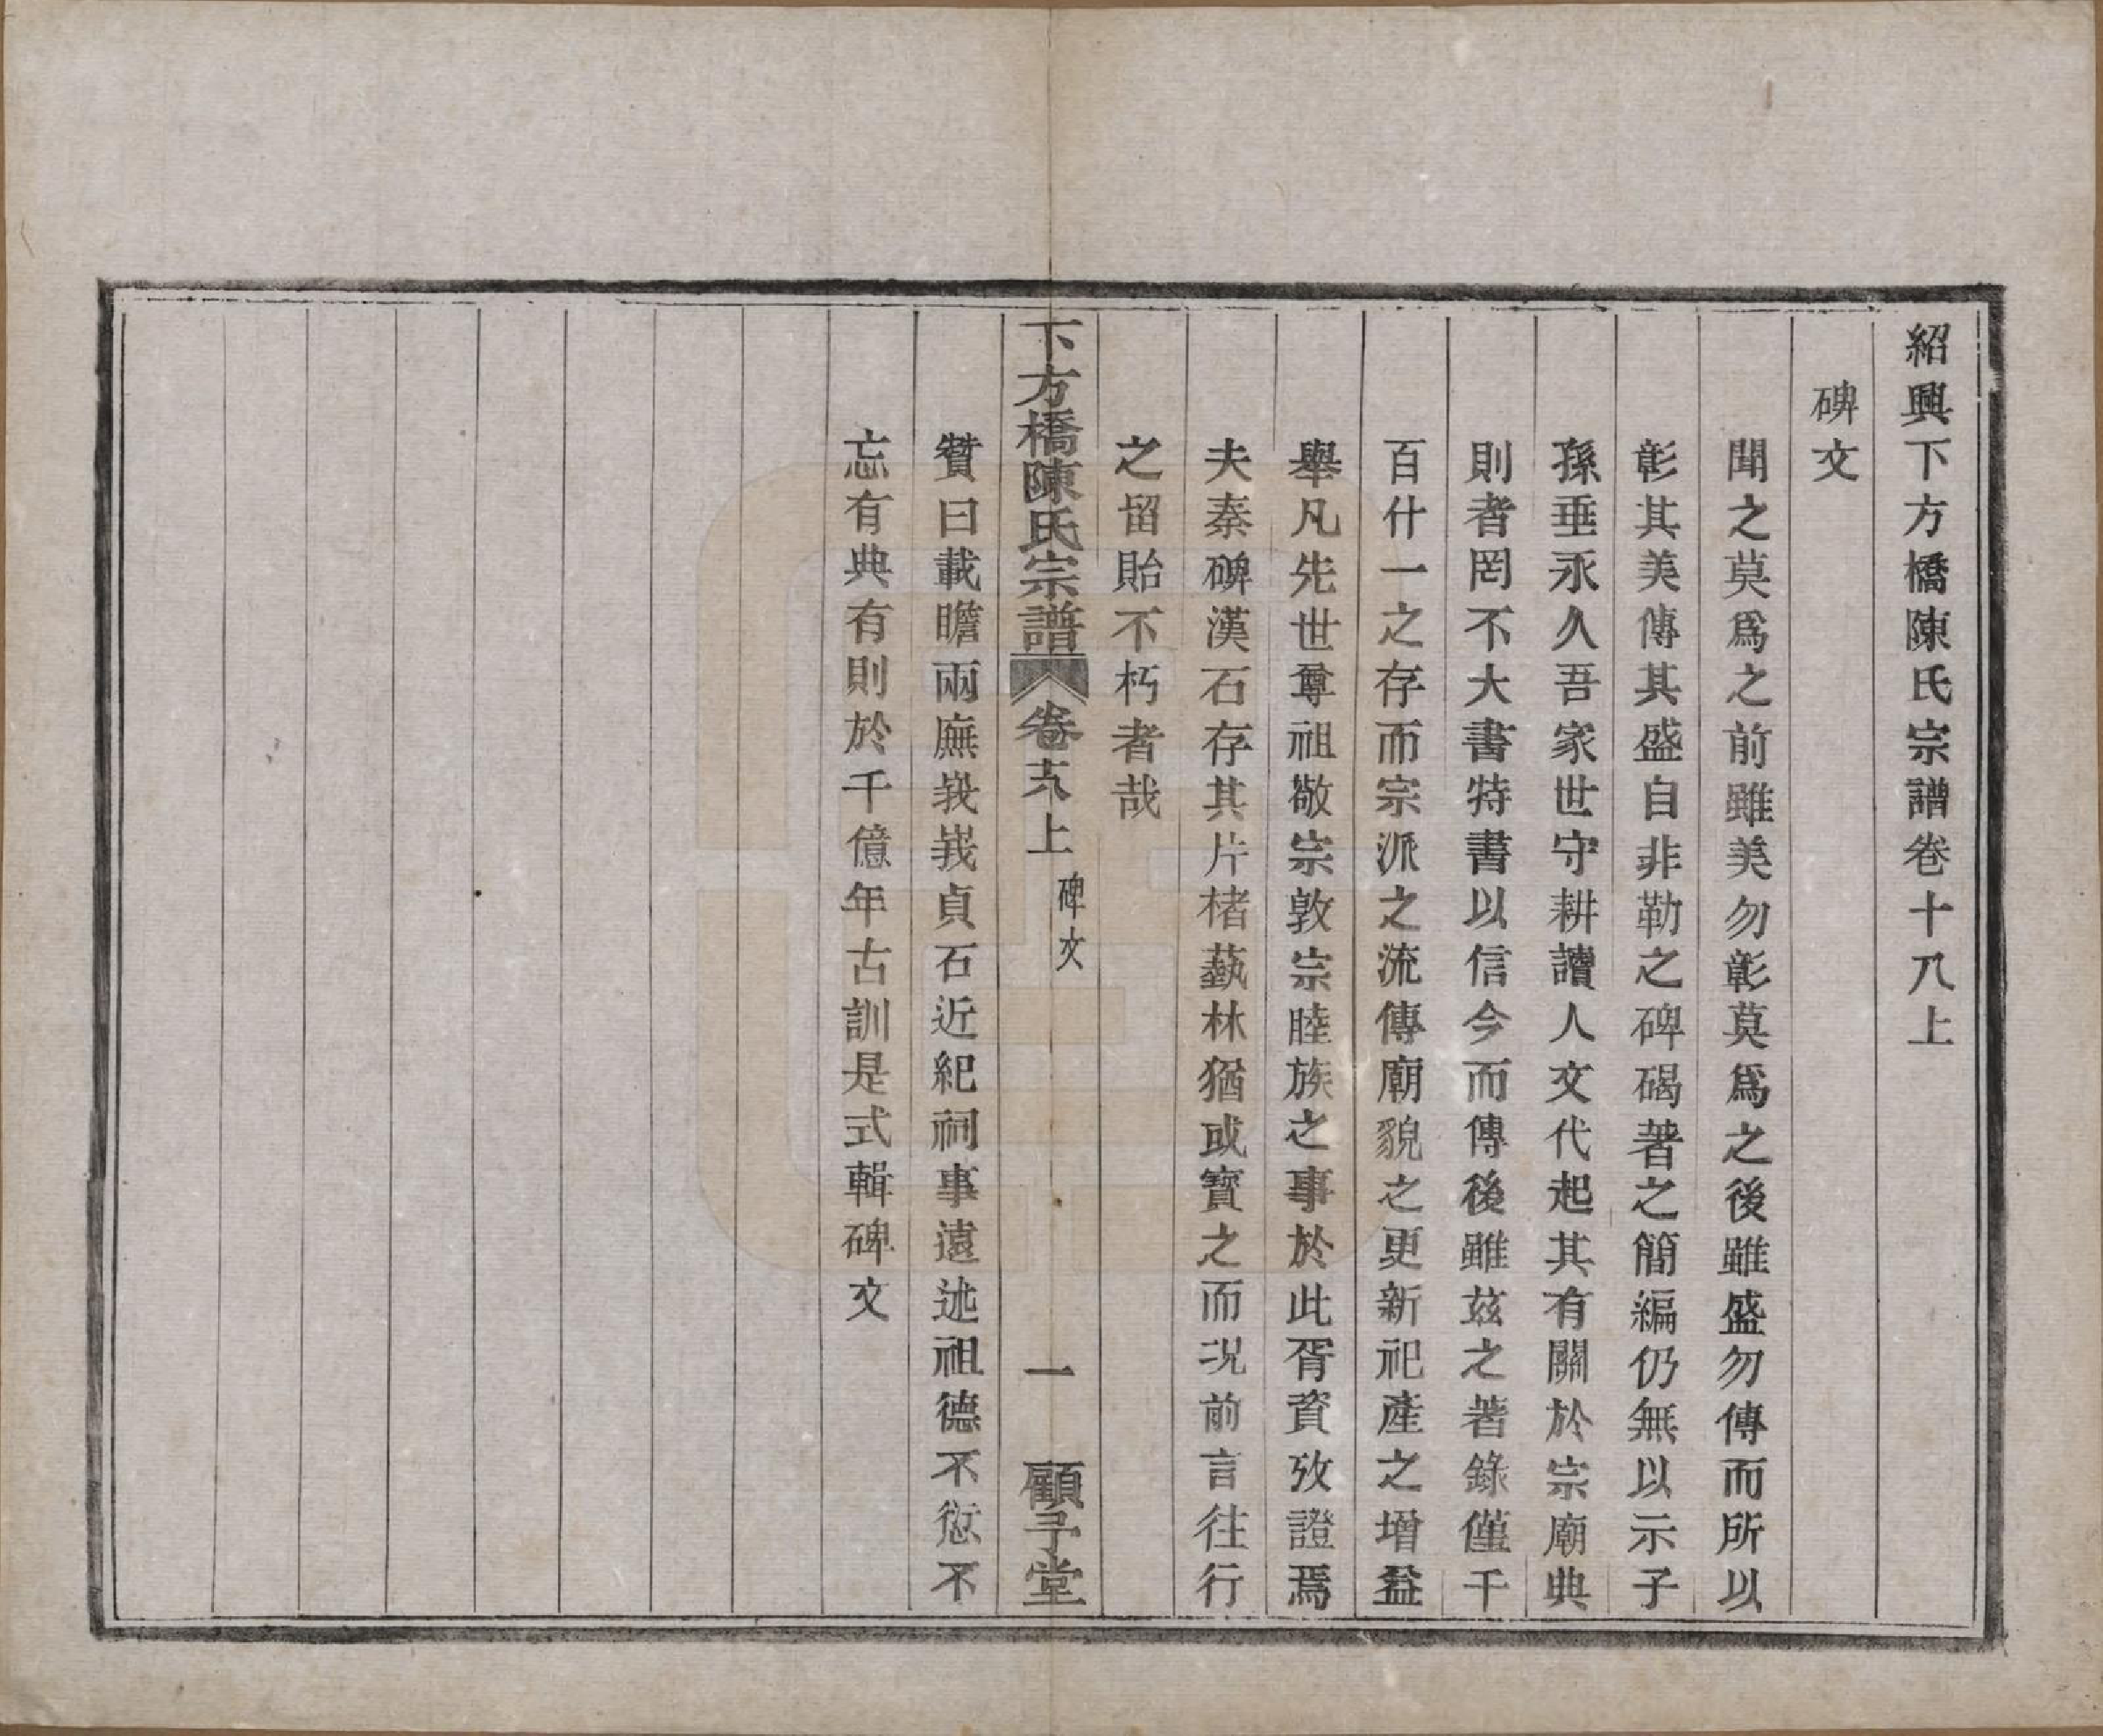 紹興下方橋陳氏宗譜卷十八上
碑文
聞之莫爲之前雖美勿彰莫爲之後雖盛勿傳而所以
彰其美傳其盛自非勒之碑碣著之簡編仍無以示子
孫垂永久吾家世守耕讀人文代起其有關於宗廟典
則者罔不大書特書以信今而傳後雖茲之著錄僅千
百什一之存而宗派之流傳廟貌之更新祀產之增益
舉凡先世尊祖敬宗敦宗睦族之事於此胥資攷證焉
夫秦碑漢石存其片楮藝林猶或寶之而況前言往行
之留貽不朽者哉
下方橋陳氏宗譜 卷十八上 碑文 一 顧予堂
贊曰載瞻兩廡峩峩貞石近紀祠事遠述祖德不愆不
忘有典有則於千億年古訓是式輯碑文